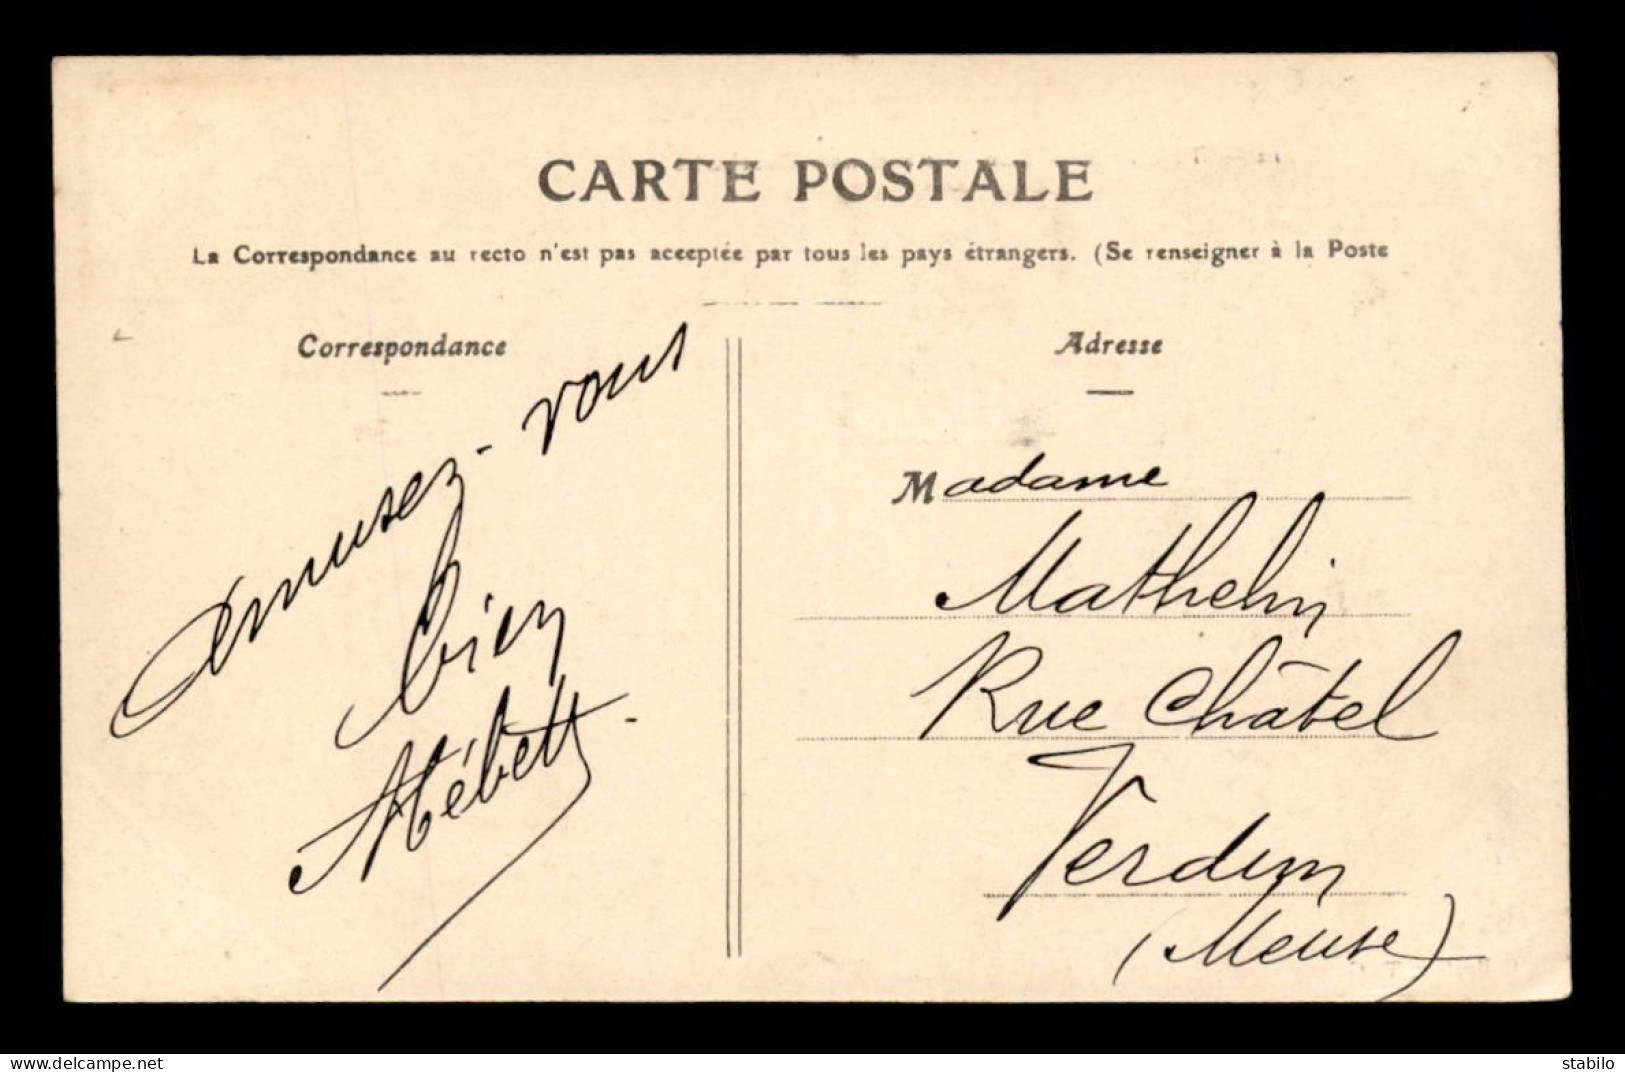 CARTE POSTALE
La Correspondance au recto n'est pas acceptée par tous les pays étrangers. (Se renseigner à la Poste
Correspondance
Amusez-vous
bien
Adresse
Madame
Mathelin
Rue Châtel
Verdun
(Meuse)
delcampe.net
stabilo